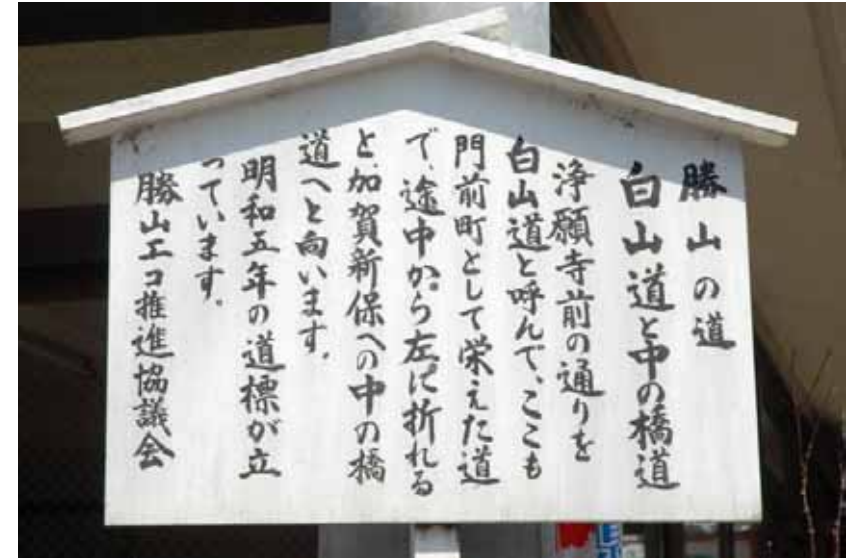 勝山の道
白山道と中の橋道
浄願寺前の通りを
白山道と呼んで、ここも
門前町として栄えた道
で、途中から左に折れる
と、加賀新保への中の橋
道へと向います。
明和五年の道標が立
っています。
勝山エコ推進協議会